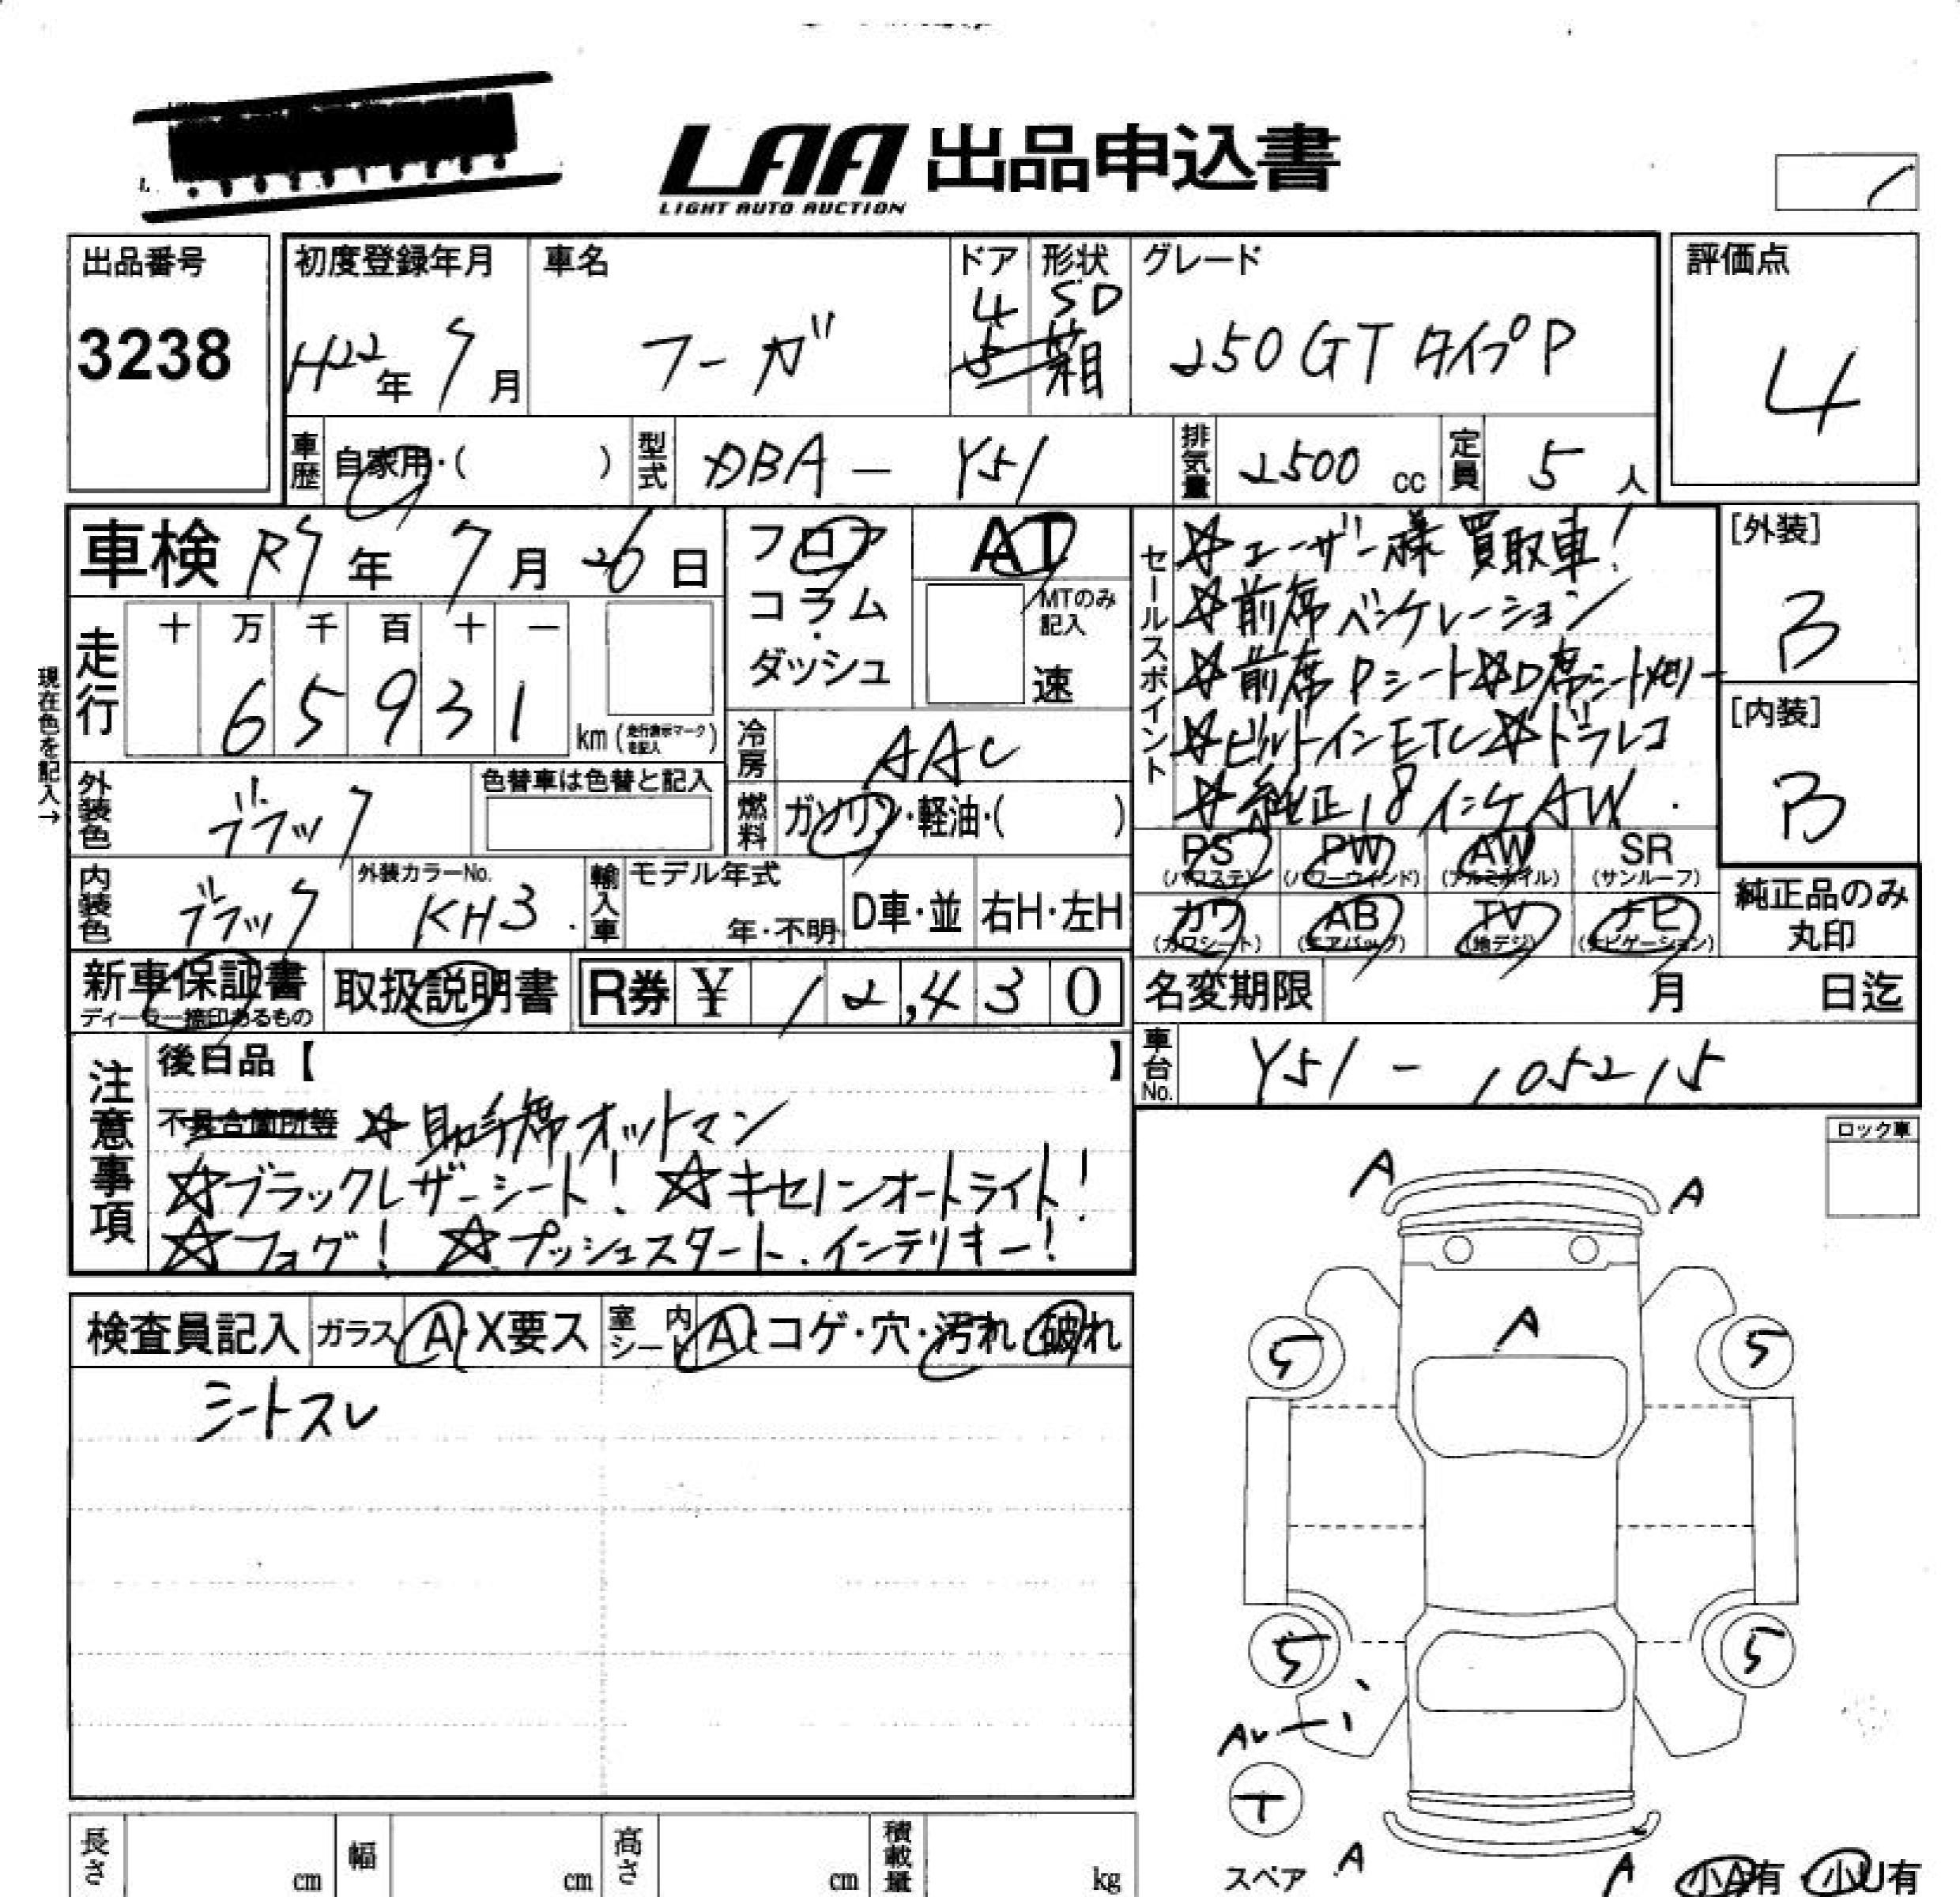 LAA 出品申込書
LIGHT AUTO AUCTION
出品番号
3238
初度登録年月
H22年 9月
車名
フーガ
ドア
4
5
形状
SD
箱
グレード
250GT タイプP
評価点
4
車歴
自家用・( )
型式
DBA - Y51
排気量
2500 cc
定員
5 人
車検 R9年 7月 26日
走行
十 万 千 百 十 一
6 5 9 3 1
km (走行表示マークを記入)
現在色を記入→
フロア・コラム・ダッシュ
AT
MTのみ記入
速
冷房
AAC
燃料
ガソリン・軽油・( )
外装色
ブラック
色替車は色替と記入
内装色
ブラック
外装カラーNo.
KH3
輸入車
モデル年式
年・不明
D車・並
右H・左H
セールスポイント
☆ユーザー様買取車!
☆前席ベンチレーション
☆前席Pシート☆D席シートメモリー
☆ビルトインETC☆ドラレコ
☆純正18インチAW.
[外装]
B
[内装]
B
PS (パワステ)
PW (パワーウィンド)
AW (アルミホイル)
SR (サンルーフ)
カワ (カワシート)
AB (エアバッグ)
TV (地デジ)
ナビ (ナビゲーション)
純正品のみ丸印
新車保証書
ディーラー捺印あるもの
取扱説明書
R券 ¥ 12,430
名変期限 月 日迄
車台No.
Y51 - 105215
注意事項
後日品【 】
不具合箇所等 ☆助手席オットマン
☆ブラックレザーシート! ☆キセノンオートライト!
☆フォグ! ☆プッシュスタート.インテリキー!
ロック車
検査員記入
ガラス A・X要ス
室内シート A・コゲ・穴・汚れ・破れ
シートスレ
A A
A
5 5
5 5
AU
T
スペア
A A
小A有・小U有
長さ cm
幅 cm
高さ cm
積載量 kg